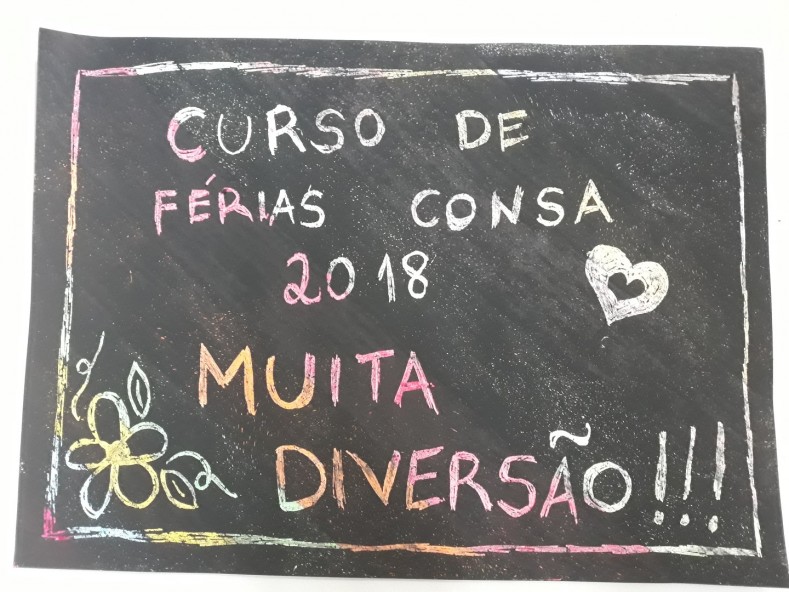 CURSO DE
FÉRIAS CONSA
2018
MUITA
DIVERSÃO!!!